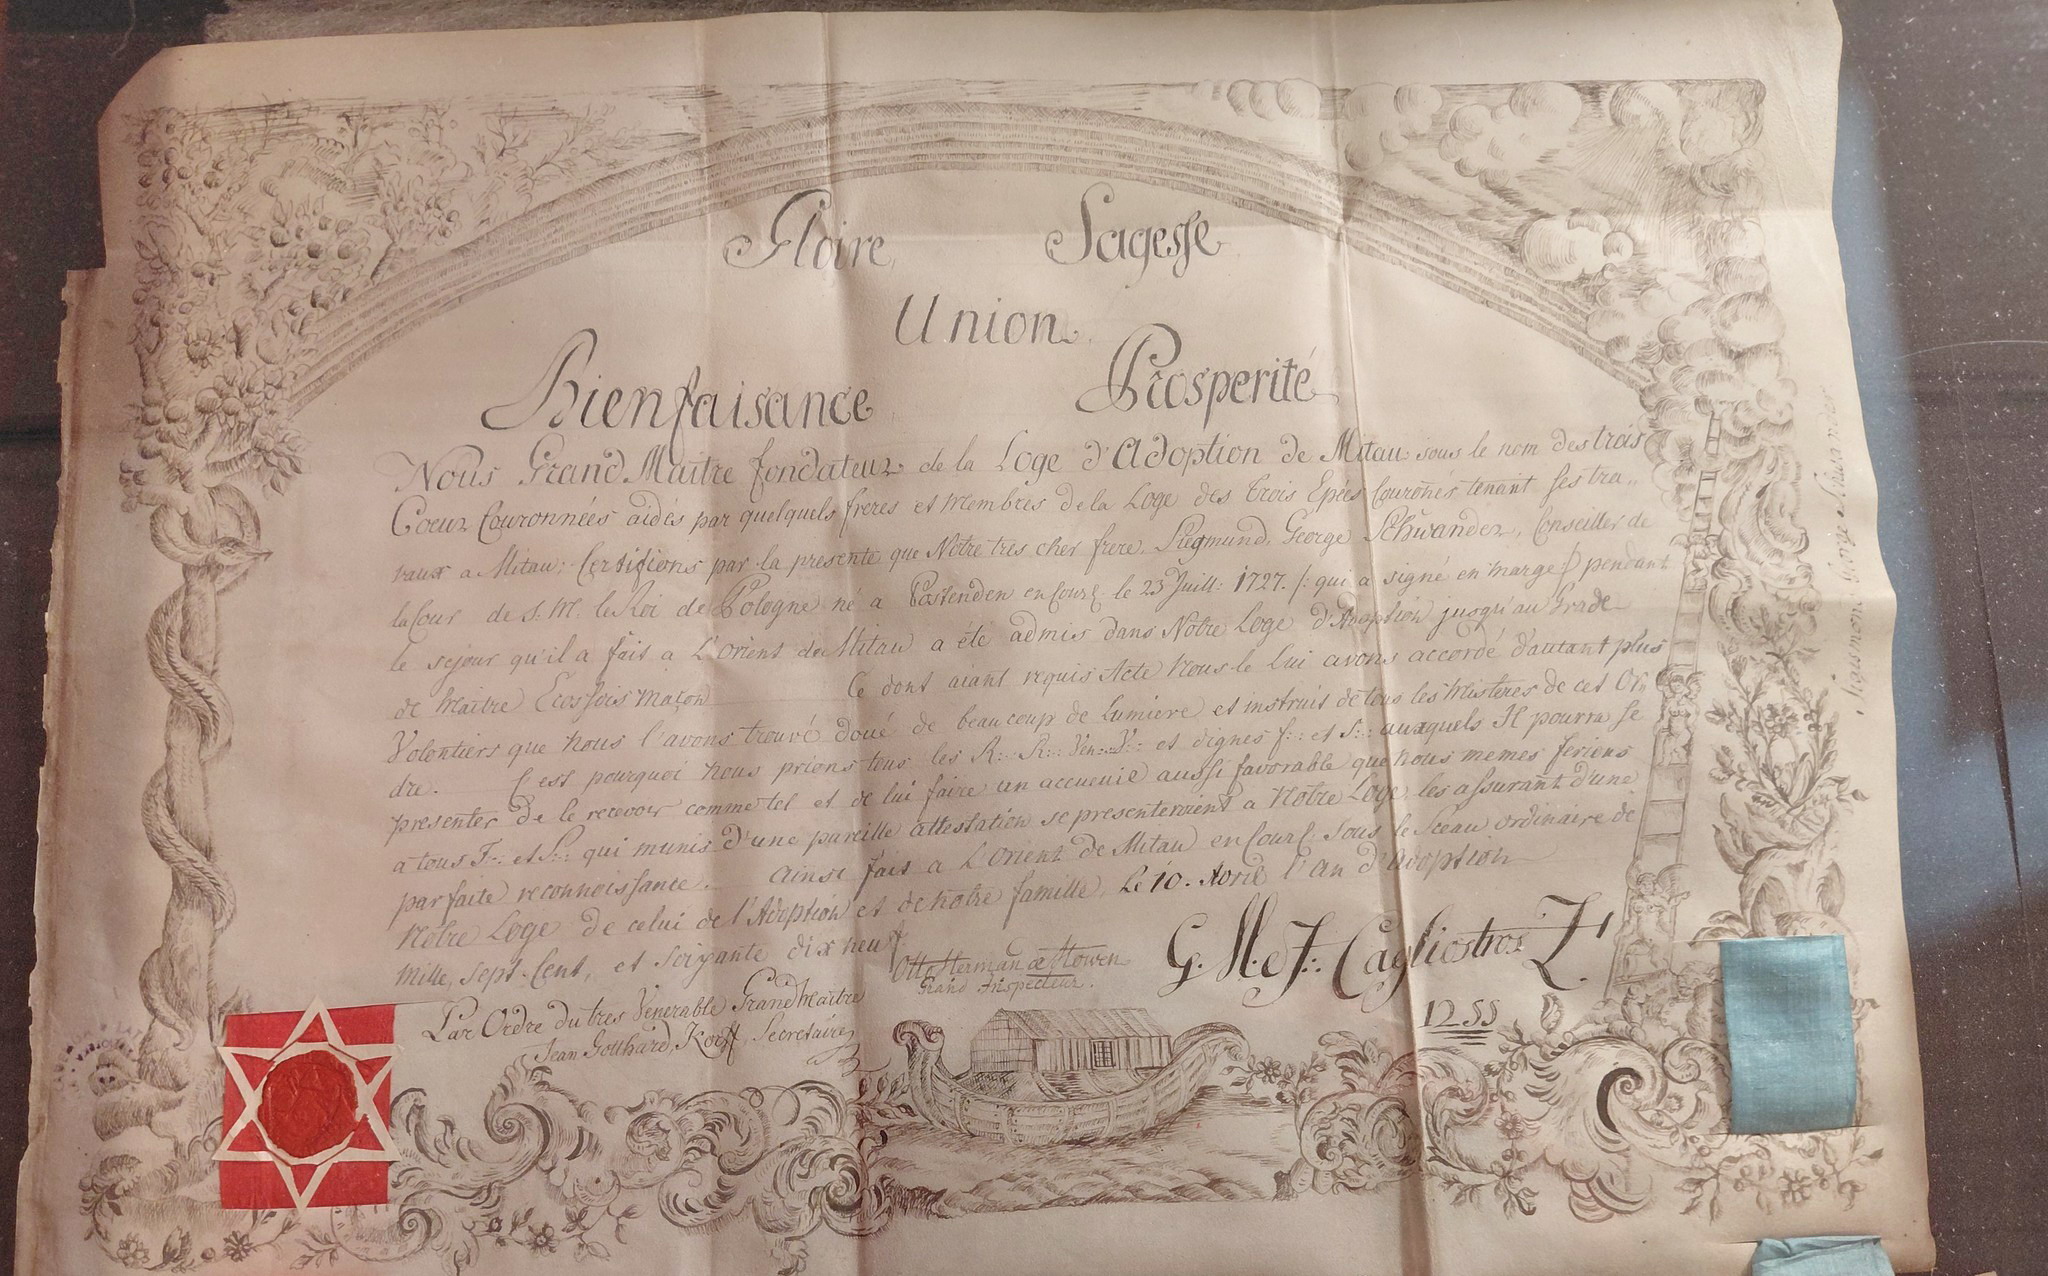 Gloire Sagesse
Union
Bienfaisance Prosperité
Nous Grand Maitre fondateur de la Loge d'Adoption de Mitau sous le nom des trois
Coeur Couronnées aidés par quelquels freres et Membres de la Loge des Trois Epées Couronés tenant ses tra„
vaux a Mitau; Certifions par la presente que Notre tres cher frere, Siegmund, George Schwander, Conseiller de
la Cour de S: M. le Roi de Pologne né a Postenden en Courl le 23 Juill: 1727. /: qui a signé en marge :/ pendant
le sejour qu'il a fait a L'Orient de Mitau a été admis dans Notre Loge d'Adoption jusqu'au Grade
de Maitre Ecossois Maçon Ce dont aiant requis Acte Nous le Lui avons accordé d'autant plus
Volontiers que Nous l'avons trouvé doué de beaucoup de Lumiere et instruit de tous les Misteres de cet Or„
dre. C'est pourquoi Nous prions tous les R: R: Ven: V: et dignes f: et S: auxquels Il pourra se
presenter de le recevoir comme tel et de lui faire un accueuil aussi favorable que Nous memes ferions
a tous F: et S: qui munis d'une pareille attestation se presenteroient a Notre Loge, les assurant d'une
parfaite reconnoissance. Ainsi fait a L'Orient de Mitau en Courl: sous le Sceau ordinaire de
Notre Loge de celui de l'Adoption et de notre famille, Le 10. Avril l'An d'Adoption
Mille, Sept-Cent, et soixante dix neuf
Otto Herman de Howen
Grand Inspecteur.
G. M. d F: Cagliostros
1255
Par Ordre du tres Venerable Grand Maitre
Jean Gotthard, Korff, Secretaire
Siegismund George Schwander